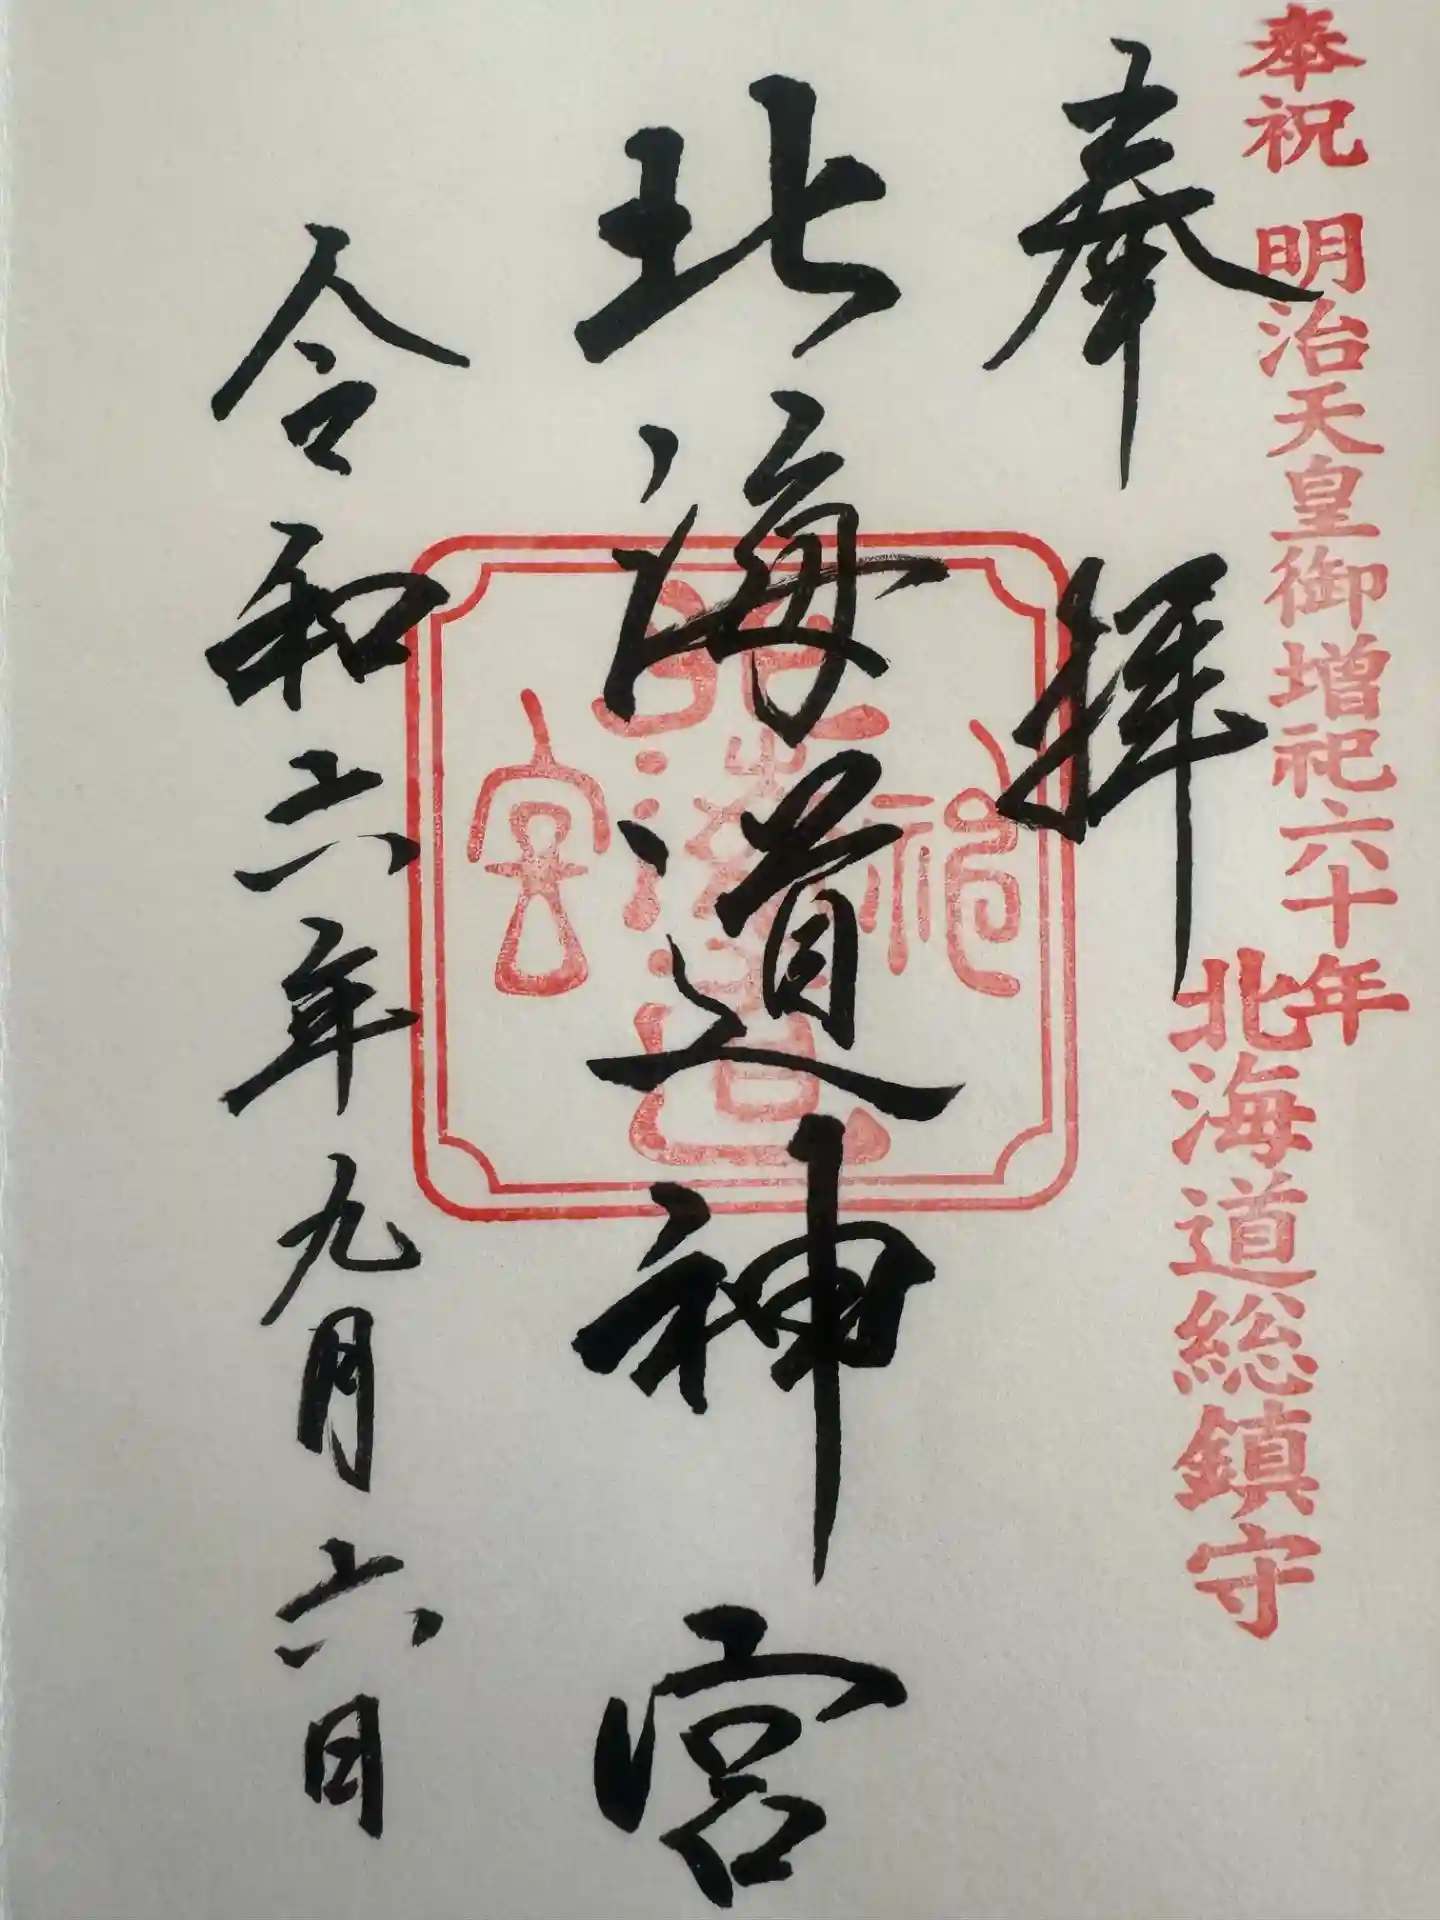 奉祝 明治天皇御増祀六十年
北海道総鎮守
奉拝
北海道神宮
北海道神宮
令和六年九月六日